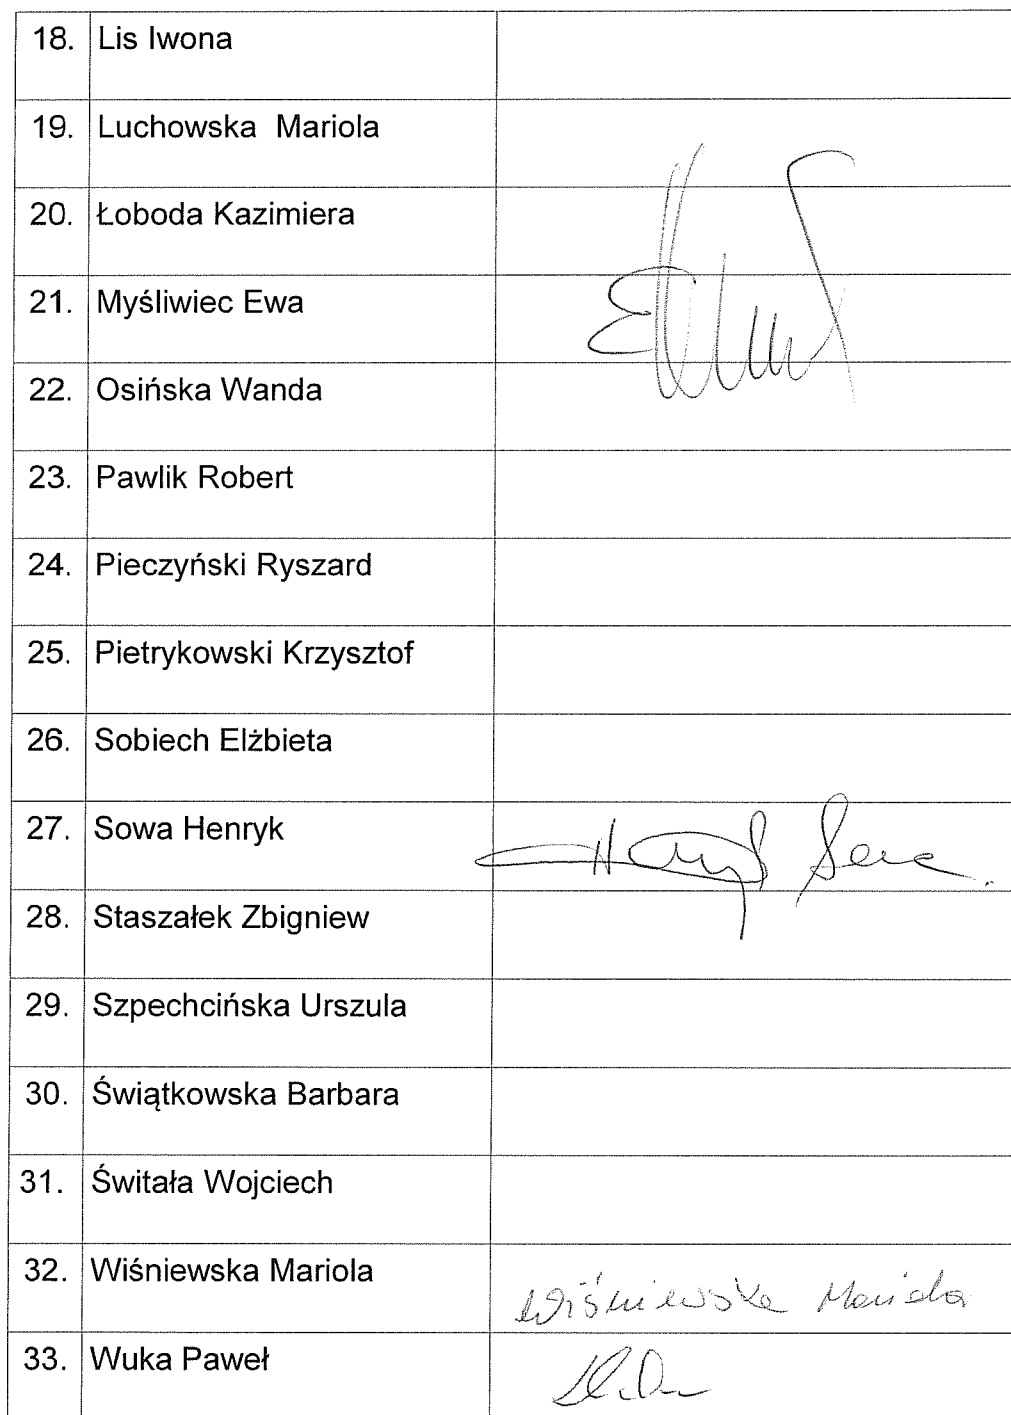 18. Lis Iwona
19. Luchowska Mariola
20. Łoboda Kazimiera
21. Myśliwiec Ewa
22. Osińska Wanda
23. Pawlik Robert
24. Pieczyński Ryszard
25. Pietrykowski Krzysztof
26. Sobiech Elżbieta
27. Sowa Henryk
28. Staszałek Zbigniew
29. Szpechcińska Urszula
30. Świątkowska Barbara
31. Świtała Wojciech
32. Wiśniewska Mariola Wiśniewska Mariola
33. Wuka Paweł